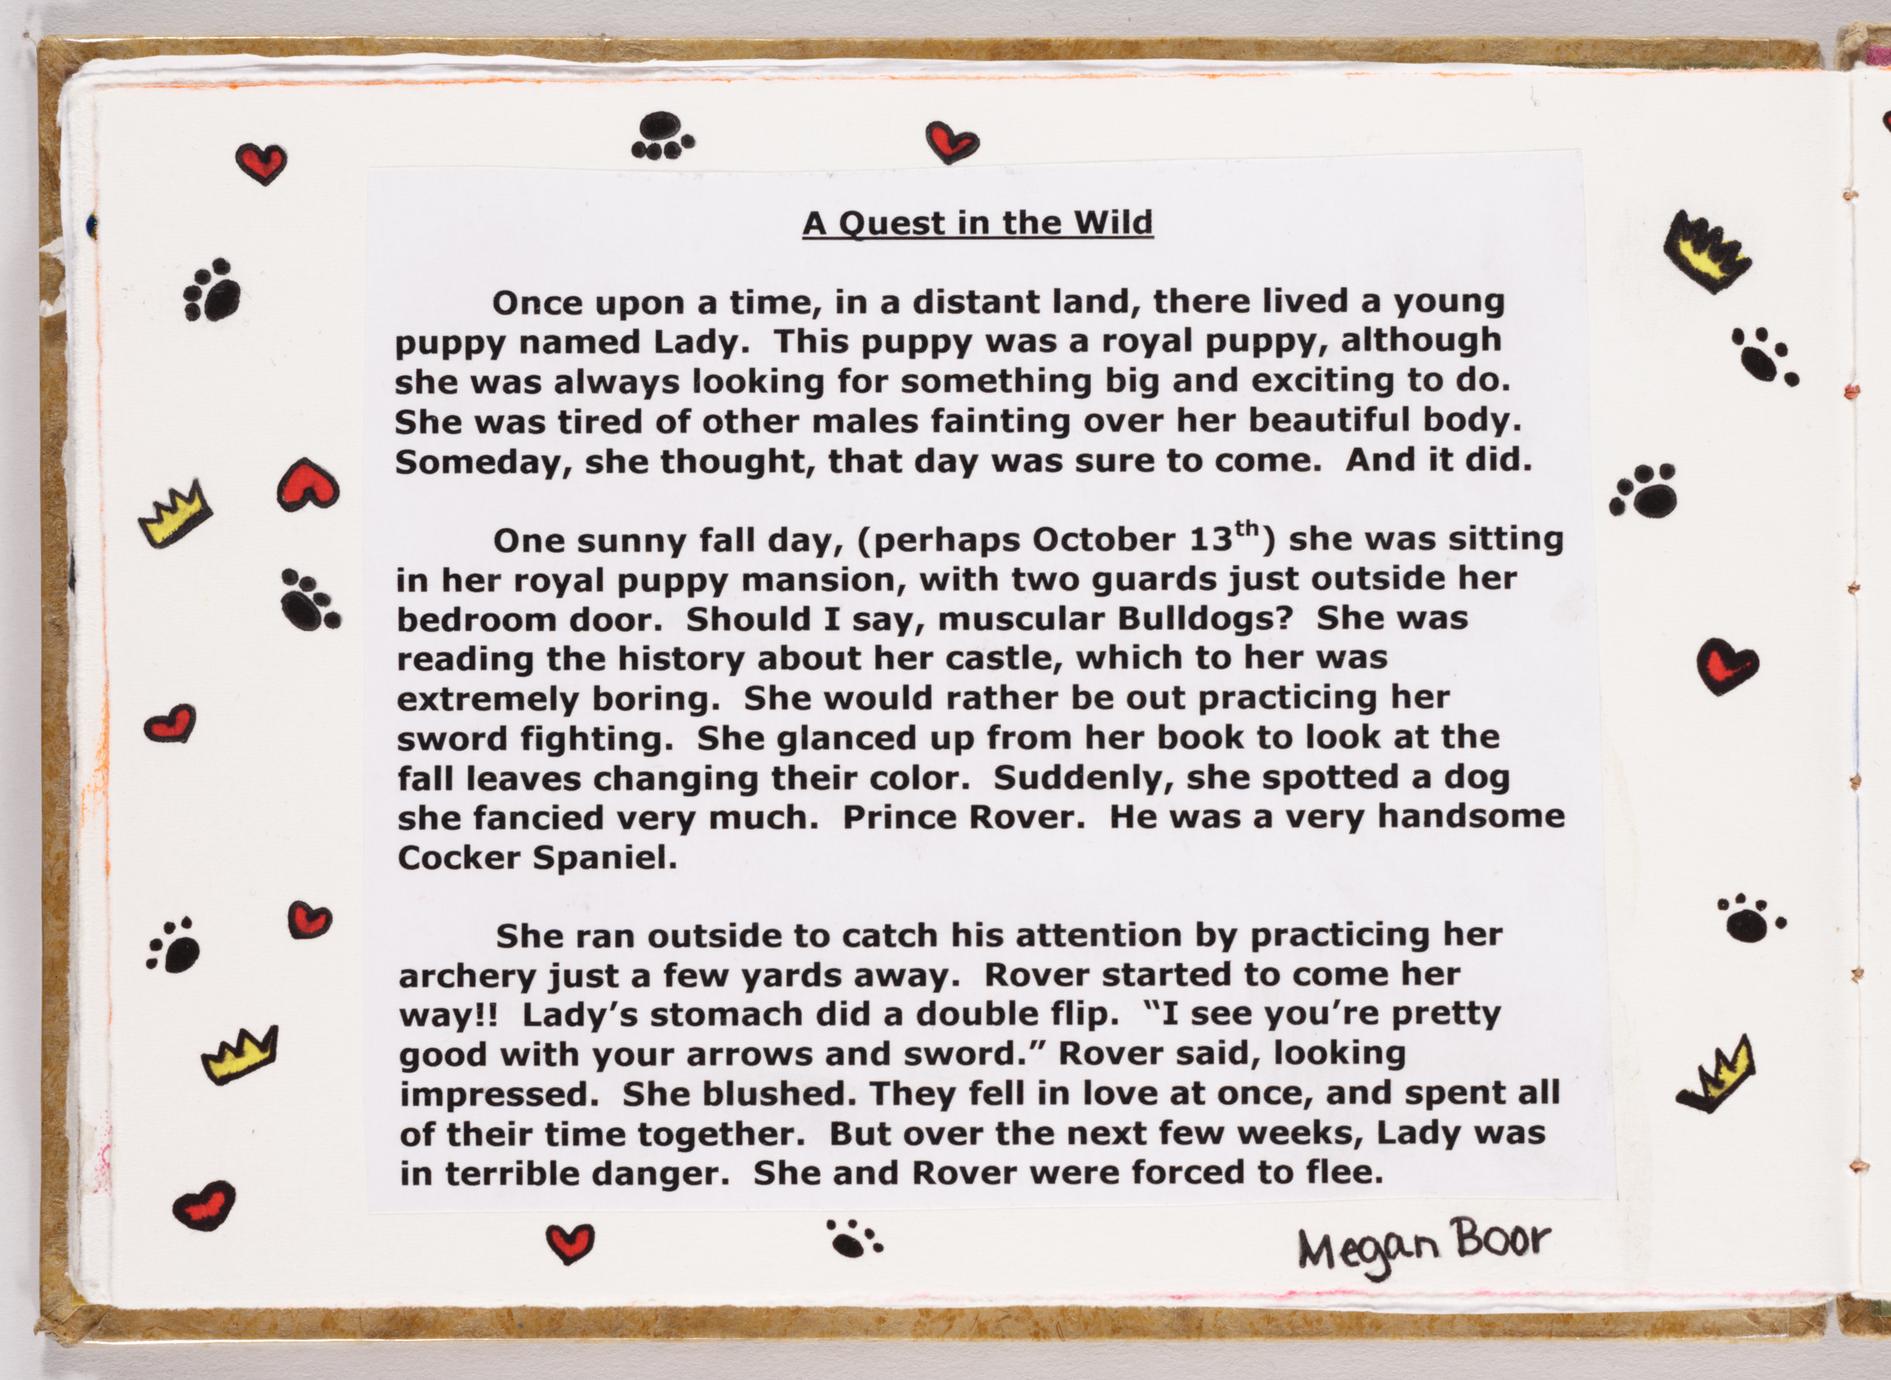 A Quest in the Wild
Once upon a time, in a distant land, there lived a young
puppy named Lady.  This puppy was a royal puppy, although
she was always looking for something big and exciting to do.
She was tired of other males fainting over her beautiful body.
Someday, she thought, that day was sure to come.  And it did.
One sunny fall day, (perhaps October 13th) she was sitting
in her royal puppy mansion, with two guards just outside her
bedroom door.  Should I say, muscular Bulldogs?  She was
reading the history about her castle, which to her was
extremely boring.  She would rather be out practicing her
sword fighting.  She glanced up from her book to look at the
fall leaves changing their color.  Suddenly, she spotted a dog
she fancied very much.  Prince Rover.  He was a very handsome
Cocker Spaniel.
She ran outside to catch his attention by practicing her
archery just a few yards away.  Rover started to come her
way!!  Lady’s stomach did a double flip.  “I see you’re pretty
good with your arrows and sword.” Rover said, looking
impressed.  She blushed. They fell in love at once, and spent all
of their time together.  But over the next few weeks, Lady was
in terrible danger.  She and Rover were forced to flee.
Megan Boor